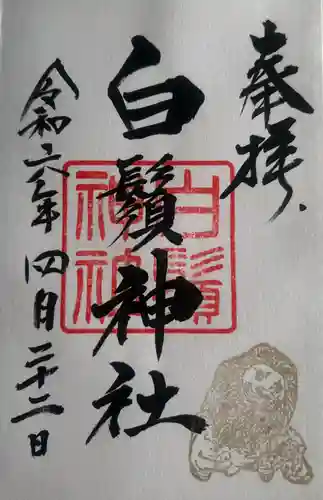 奉拝
白鬚神社
令和六年四月二十二日
白鬚神社